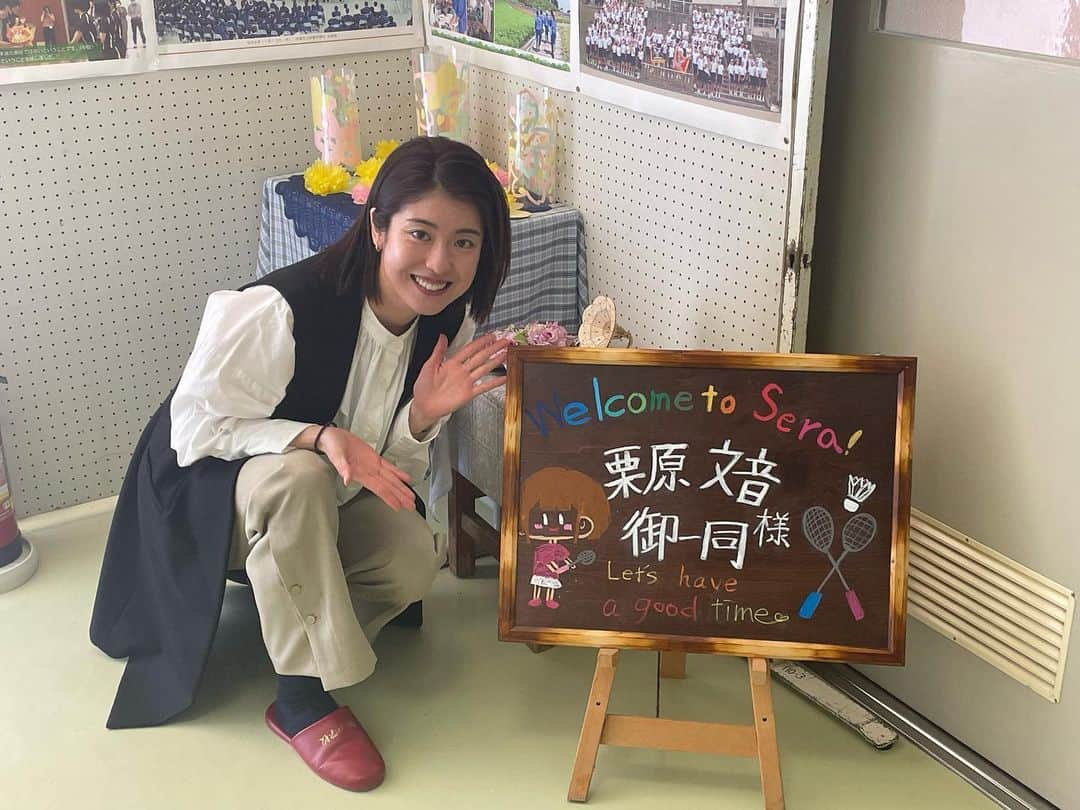 Welcome to Sera!
栗原 文音
御一同様
Let's have
a good time